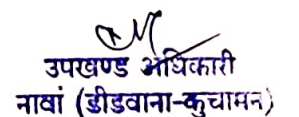 उपखण्ड अधिकारी
नावां (डीडवाना-कुचामन)